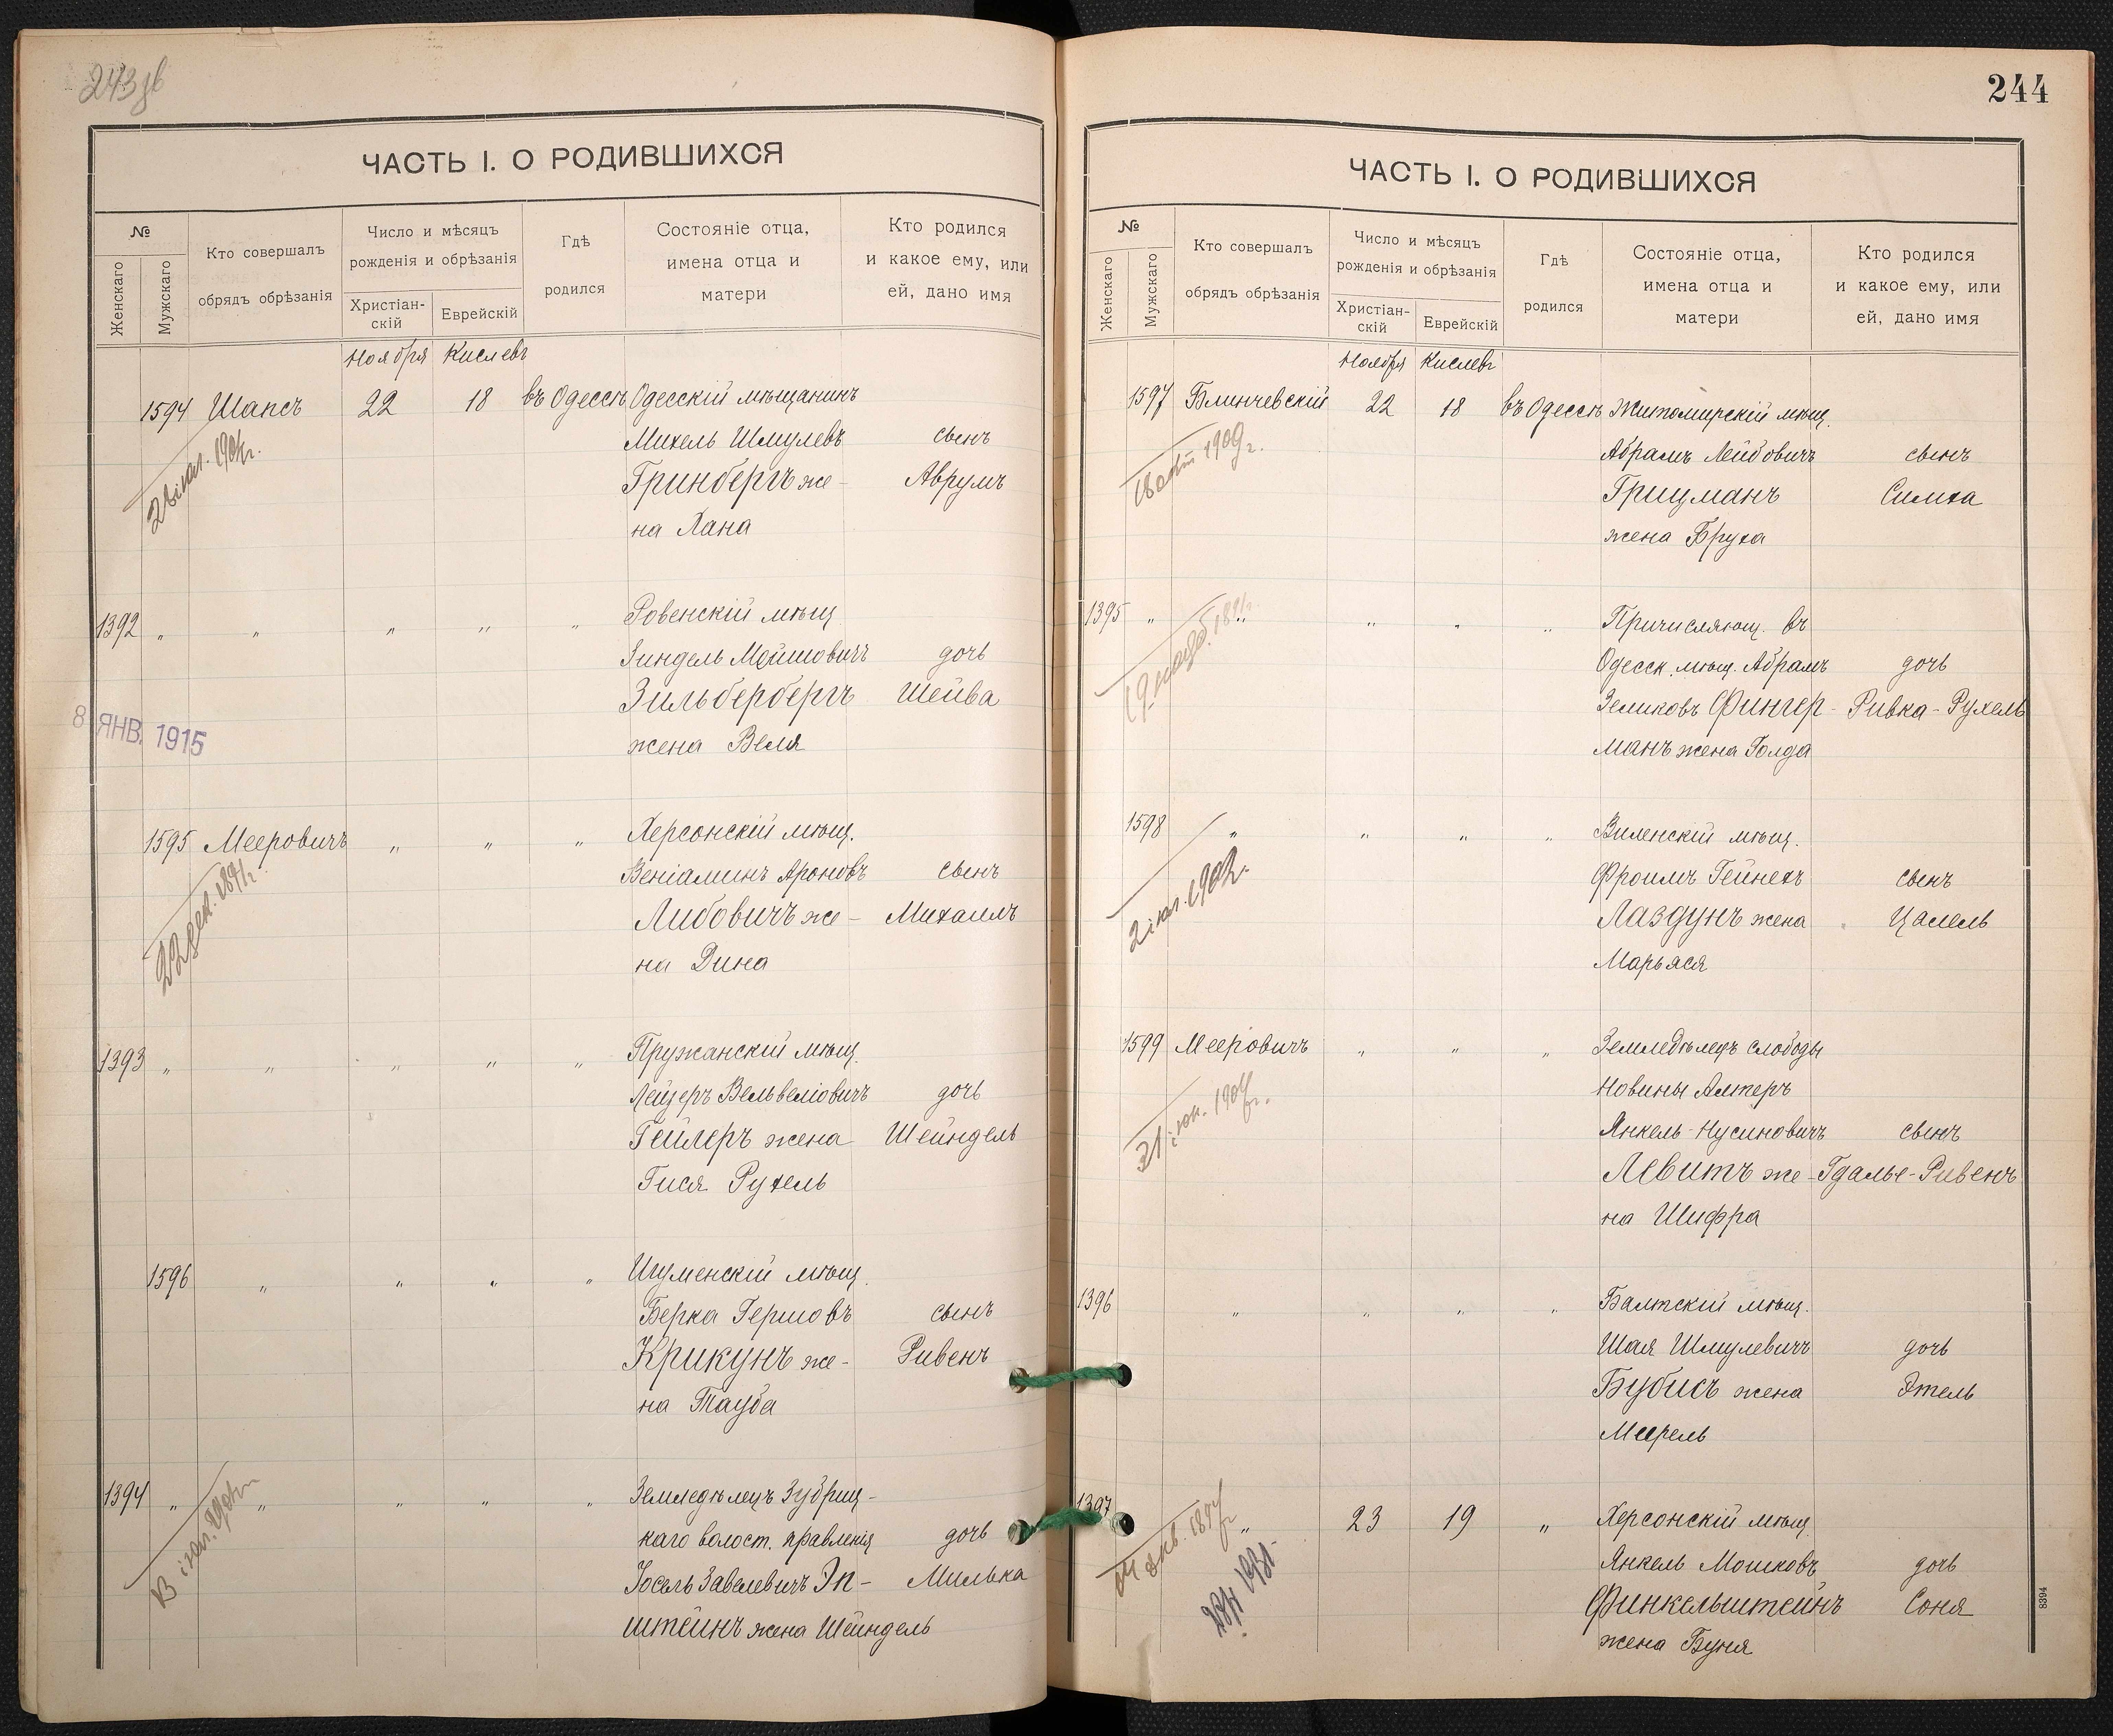 243 об
ЧАСТЬ I. О РОДИВШИХСЯ
№
Женскаго
Мужскаго
Кто совершалъ
обрядъ обрѣзанія
Число и мѣсяцъ
рожденія и обрѣзанія
Христіан-
скій
Еврейскій
Гдѣ
родился
Состояніе отца,
имена отца и
матери
Кто родился
и какое ему, или
ей, дано имя
Ноября Кислевъ
1594 Шапсъ 22 18 въ Одессѣ Одесскій мѣщанинъ
Михель Шмулевъ сынъ
Гринбергъ же- Аврумъ
на Хана
1392 " " " " " Ровенскій мѣщ.
Зиндель Мойшовичъ дочь
Зильбербергъ Шейва
жена Веля
8 ЯНВ. 1915
1595 Мееровичъ " " " Херсонскій мѣщ.
Веніаминъ Ароновъ сынъ
Либовичъ же- Михаилъ
на Дина
22 дек. 1891 г.
1393 " " " " " Пружанскій мѣщ.
Лейзеръ Вельвеліовичъ дочь
Гейлеръ жена Шейндель
Гися Рухель
1596 " " " " Игуменскій мѣщ.
Берка Гершовъ сынъ
Крикунъ же- Ривенъ
на Тауба
1394 " " " " " Земледѣлецъ Зубриц-
каго волост. правленія дочь
Іосель Завелевичъ Эп- Милька
штейнъ жена Шейндель
244
ЧАСТЬ I. О РОДИВШИХСЯ
№
Женскаго
Мужскаго
Кто совершалъ
обрядъ обрѣзанія
Число и мѣсяцъ
рожденія и обрѣзанія
Христіан-
скій
Еврейскій
Гдѣ
родился
Состояніе отца,
имена отца и
матери
Кто родился
и какое ему, или
ей, дано имя
Ноября Кислевъ
1597 Блинчевскій 22 18 въ Одессѣ Житомирскій мѣщ.
Абрамъ Лейбовичъ сынъ
Грицманъ Симха
жена Бруха
18 окт 1909 г.
1395 " " " " " Причисляющ. въ
Одесск. мѣщ. Абрамъ дочь
Зеликовъ Фингер- Ривка-Рухель
манъ жена Голда
1598 " " " " Виленскій мѣщ.
Фроимъ Гейнехъ сынъ
Лаздунъ жена Цалель
Марьяся
2 іюл. 1902
1599 Мееровичъ " " " Земледѣлецъ слободы
Новины Алтеръ
Янкель-Нусиновичъ сынъ
Левитъ же- Гдалье-Ривенъ
на Шифра
1396 " " " " Балтскій мѣщ.
Шая Шмулевичъ дочь
Бубисъ жена Этель
Меерель
1397 " 23 19 " Херсонскій мѣщ.
Янкель Мошковъ дочь
Финкельштейнъ Соня
жена Буня
8394